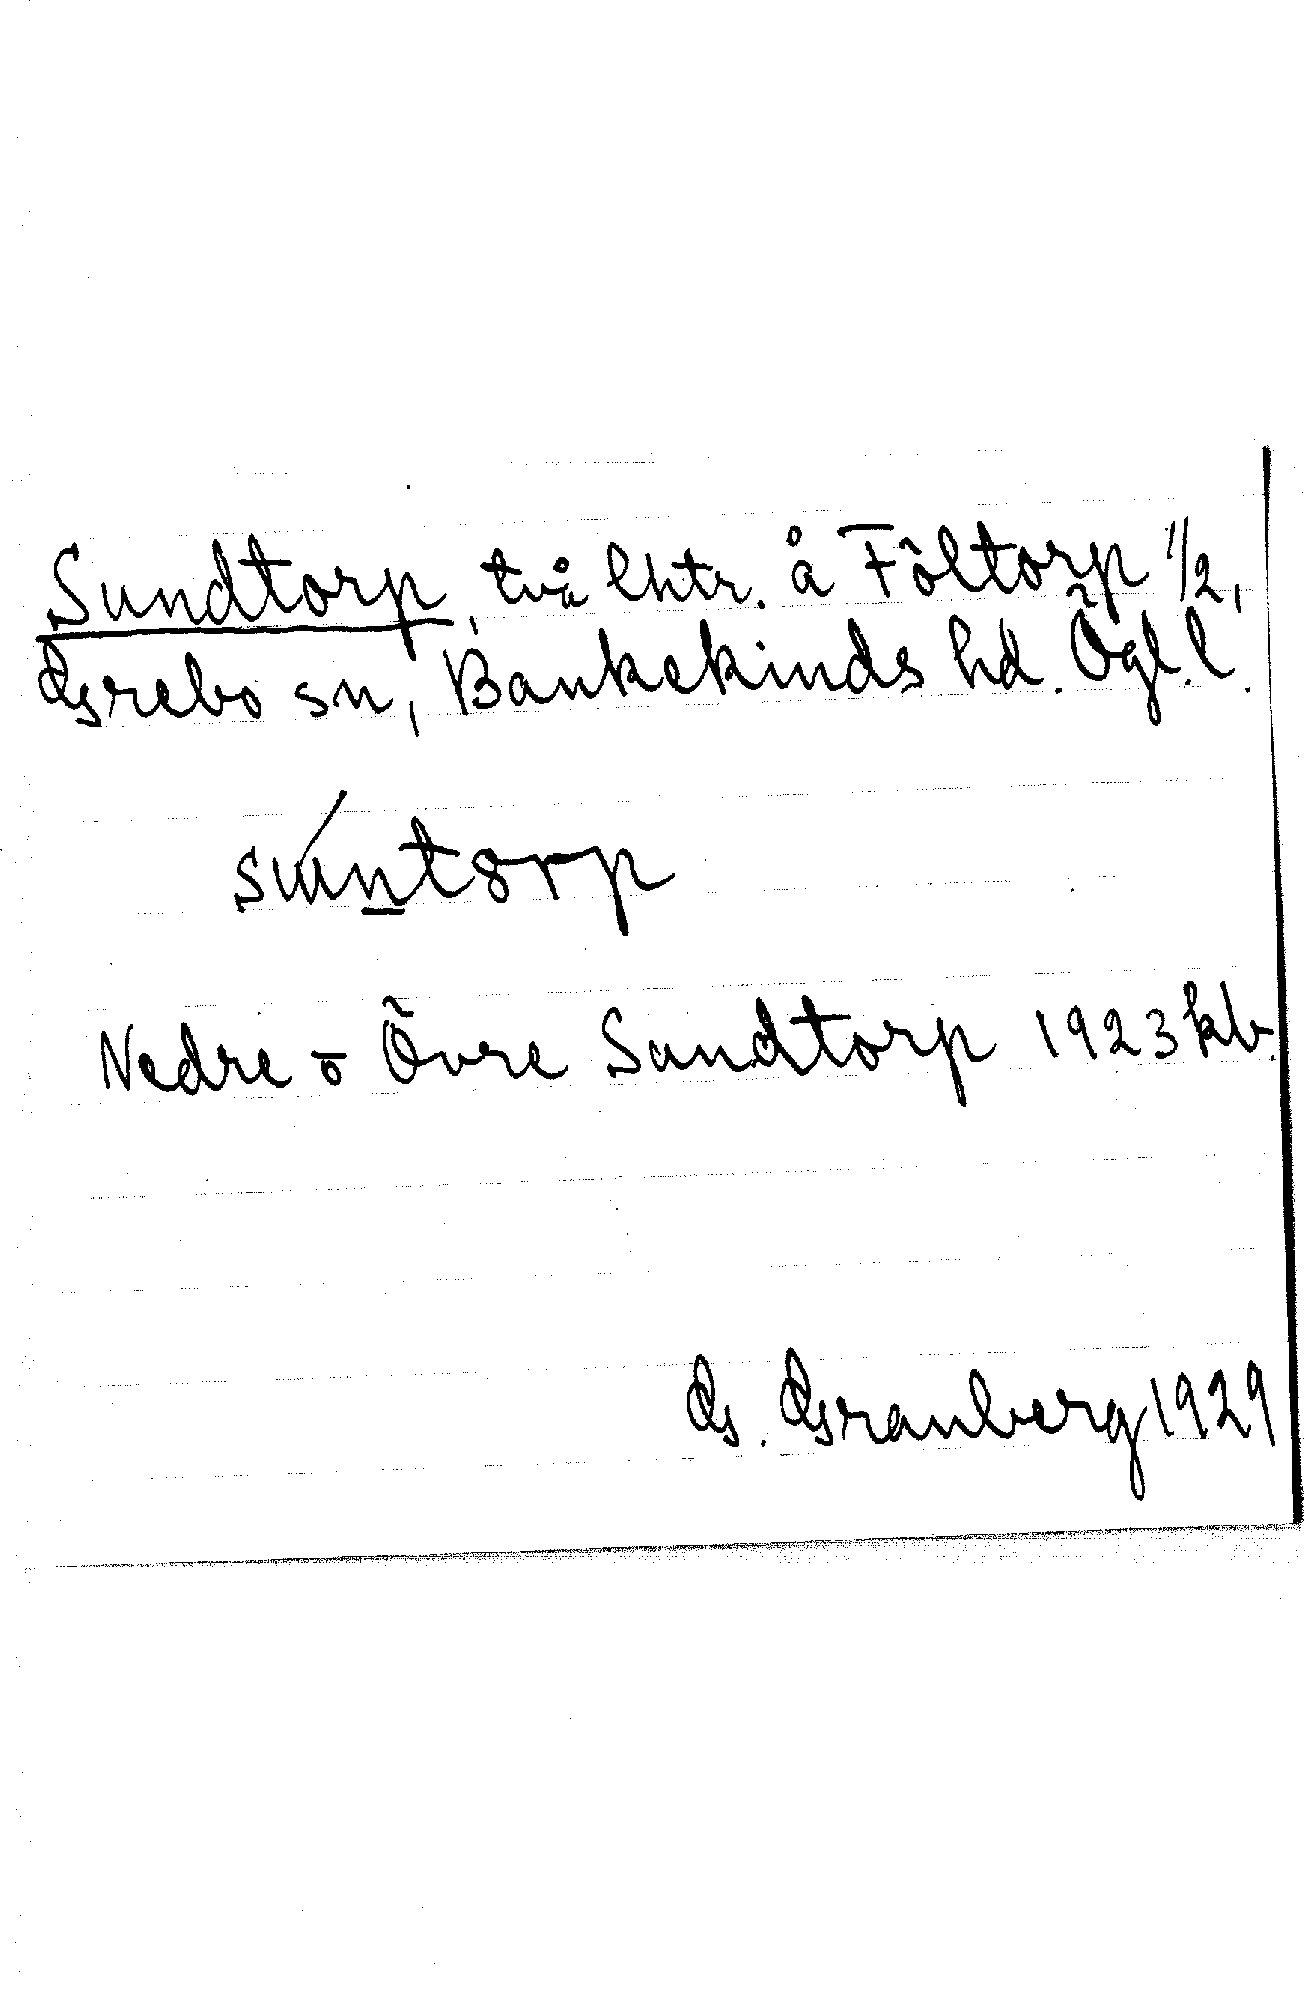 Sundtorp, två lhtr. å Föltorp 1/2,
Grebo sn, Bankekinds hd. Ögl. l.
súntorp
Nedre o Övre Sundtorp 1923 kb.
G. Granberg 1929